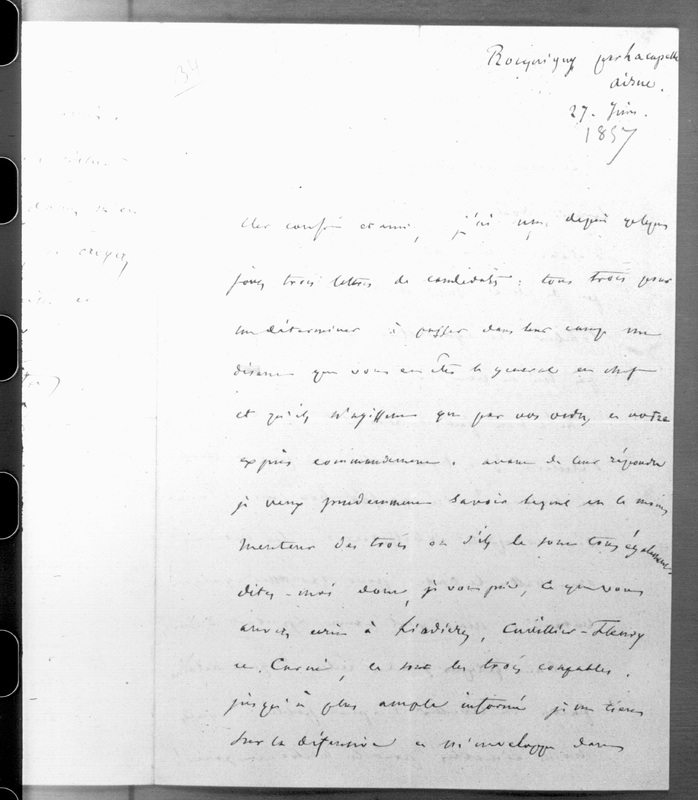 34
Rocquigny par la capelle
aisne.
27. Juin.
1857
cher confrère et ami, j'ai reçu depuis quelques
jours trois lettres de candidats : tous trois pour
me déterminer à passer dans leur camp me
disent que vous en êtes le général en chef
et qu'ils n'agissent que par vos ordres et votre
exprès commandement. avant de leur répondre
je veux prudemment savoir lequel est le moins
menteur des trois ou s'ils le sont tous également.
dites-moi donc, je vous prie, ce que vous
avez écrit à Liadières, Cuvillier-Fleury
et Carné, ce sont les trois coupables.
jusqu'à plus ample informé je me tiens
sur la défensive et m'enveloppe dans